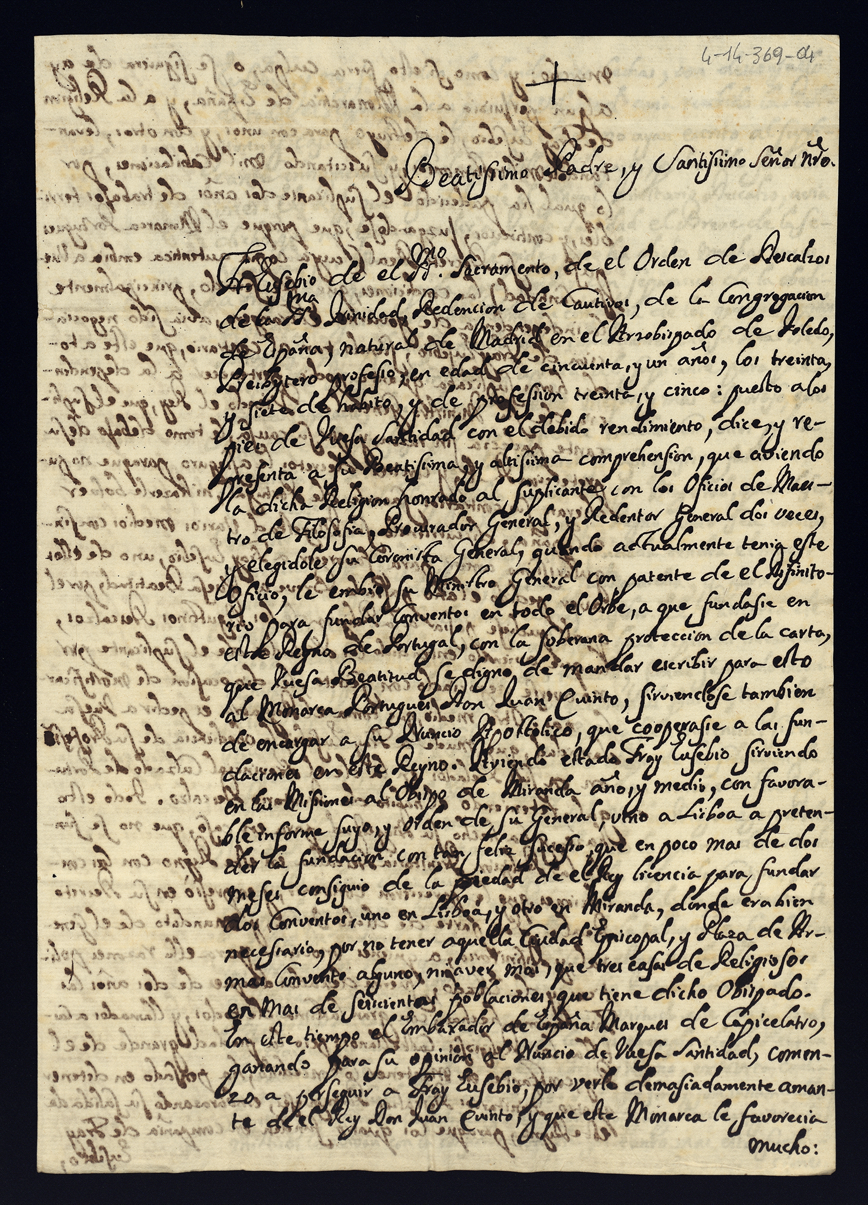 4-14-369-04
Beatissimo Padre, y Santissimo Señor nrõ.
Fray Eusebio de el SSmo. Sacramento, de el Orden de Descalzos
de la SSma Trinidad, Redencion de Cautivos, de la Congregacion
de España, natural de Madrid en el Arzobispado de Toledo,
Presbytero professo, en edad de cincuenta, y un años, los treinta,
y siete de habito, y de profession treinta, y cinco: puesto a los
pies de Vuesa Santidad con el debido rendimiento, dice, y re-
presenta a su Beatissima, y altissima comprehension, que aviendo
la dicha Religion honrado al suplicante con los Oficios de Maes-
tro de Filosofia, Procurador General, y Redentor General dos veces,
y elegidole su Coronista General, quando actualmente tenia este
Oficio, le embiò su Ministro General con patente de el Difinito-
rio para fundar Conventos en todo el Orbe, a que fundasse en
este Reyno de Portugal, con la soberana proteccion de la carta,
que Vuesa Beatitud se dignò de mandar escribir para esto
al Monarca Portugues Don Juan Quinto, sirviendose tambien
de encargar a su Nuncio Apostolico, que cooperasse a las fun-
daciones en este Reyno. Aviendo estado Fray Eusebio sirviendo
en las Missiones al Obispo de Miranda año, y medio, con favora-
ble informe suyo, y orden de su General, vino a Lisboa a preten-
der la fundacion con tan feliz sucesso, que en poco mas de dos
meses consiguiò de la piedad de el Rey licencia para fundar
dos Conventos, uno en Lisboa, y otro en Miranda, donde era bien
necessario, por no tener aquella Ciudad Episcopal, y Plaza de Ar-
mas Convento alguno, ni aver mas, que tres casas de Religiosos
en mas de seiscientas poblaciones, que tiene dicho Obispado.
En este tiempo el Embaxador de España Marques de Capicelatro,
ganando para su opinion al Nuncio de Vuesa Santidad, comen-
zo a perseguir a Fray Eusebio, por verle demasiadamente aman-
te de el Rey Don Juan Quinto, y que este Monarca le favorecia
mucho: